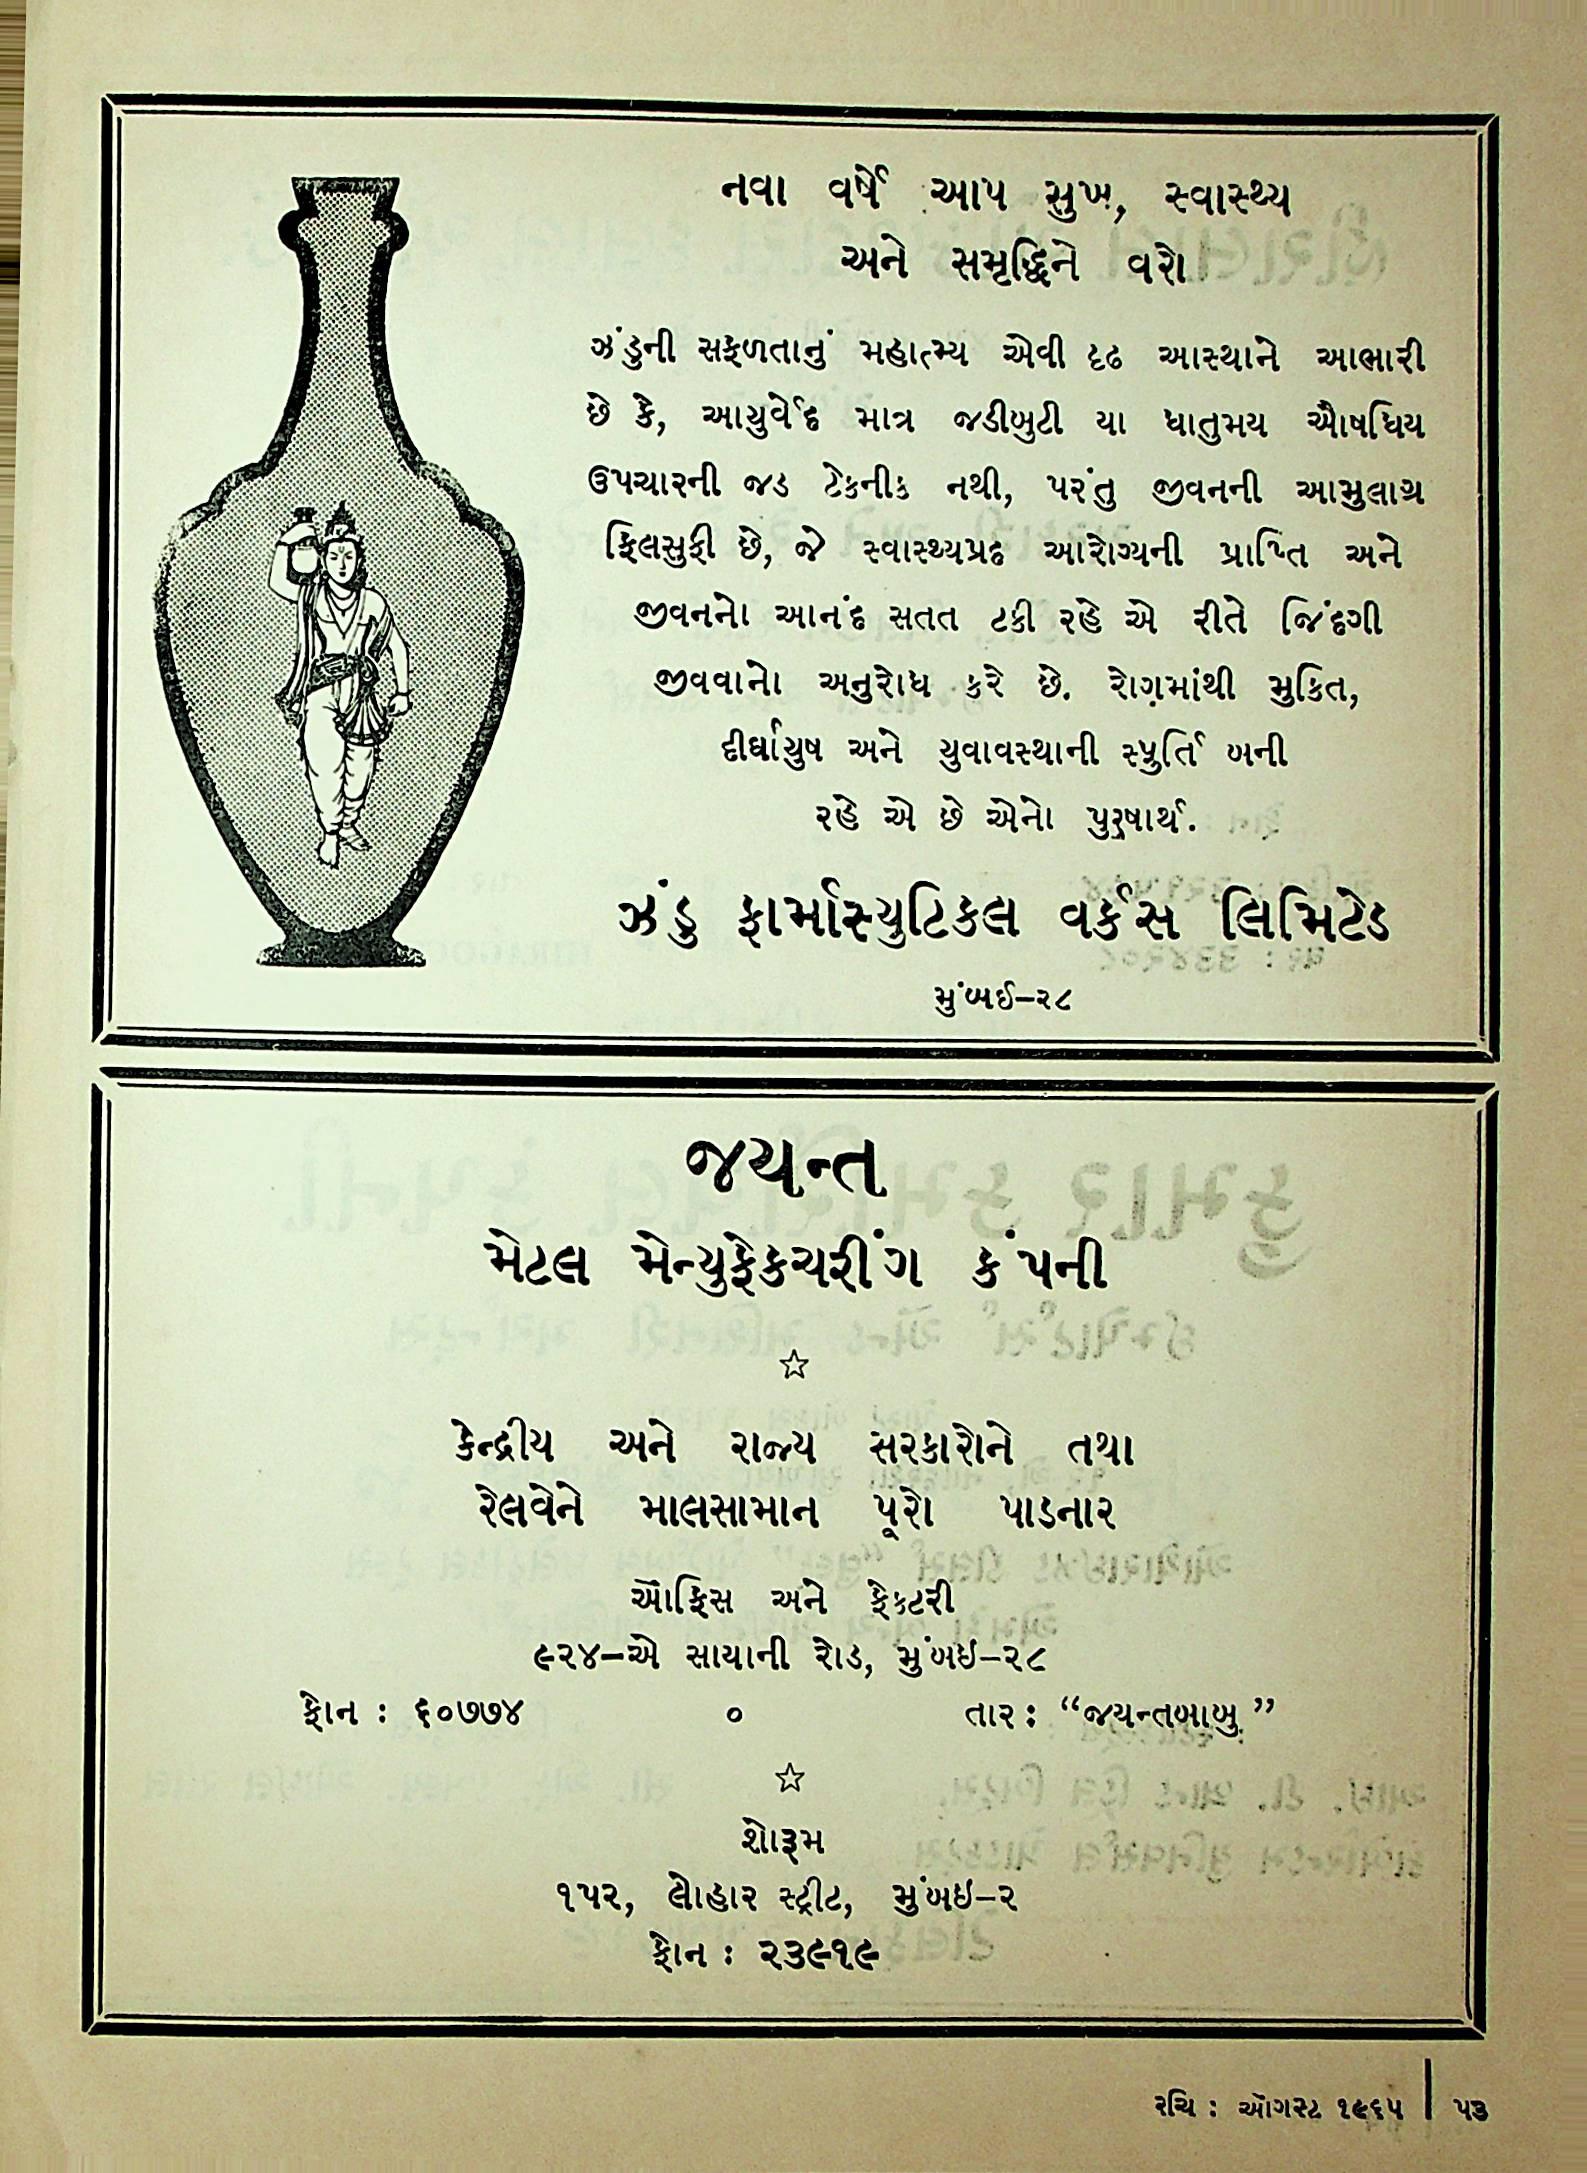 નવા વર્ષે આપ સુખ, સ્વાસ્થ્ય
અને સમૃદ્ધિને વરો
ઝંડુની સફળતાનું મહાત્મ્ય એવી દૃઢ આસ્થાને આભારી
છે કે, આયુર્વેદ માત્ર જડીબુટી યા ધાતુમય ઔષધિય
ઉપચારની જડ ટેકનીક નથી, પરંતુ જીવનની આમુલાગ્ર
ફિલસુફી છે, જે સ્વાસ્થ્યપ્રદ આરોગ્યની પ્રાપ્તિ અને
જીવનનો આનંદ સતત ટકી રહે એ રીતે જિંદગી
જીવવાનો અનુરોધ કરે છે. રોગમાંથી મુકિત,
દીર્ઘાયુષ અને યુવાવસ્થાની સ્ફુર્તિ બની
રહે એ છે એનો પુરુષાર્થ.
ઝંડુ ફાર્માસ્યુટિકલ વર્કસ લિમિટેડ
મુંબઈ–૨૮
જયન્ત
મેટલ મેન્યુફેકચરીંગ કંપની
☆
કેન્દ્રીય અને રાજ્ય સરકારોને તથા
રેલવેને માલસામાન પૂરો પાડનાર
ઑફિસ અને ફેક્ટરી
૯૨૪–એ સાયાની રોડ, મુંબઇ–૨૮
ફોન : ૬૦૭૭૪ ૦ તાર : “જયન્તબાબુ”
☆
શોરૂમ
૧૫૨, લોહાર સ્ટ્રીટ, મુંબઇ–૨
ફોન : ૨૩૯૧૯
રુચિ : ઑગસ્ટ ૧૯૬૫ | ૫૩